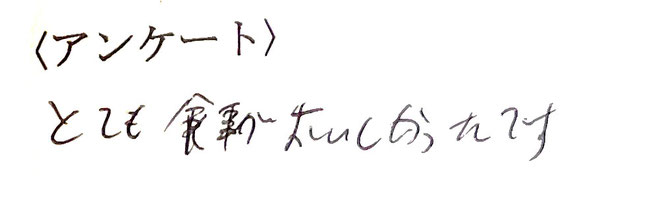 〈アンケート〉
とても食事がおいしかったです